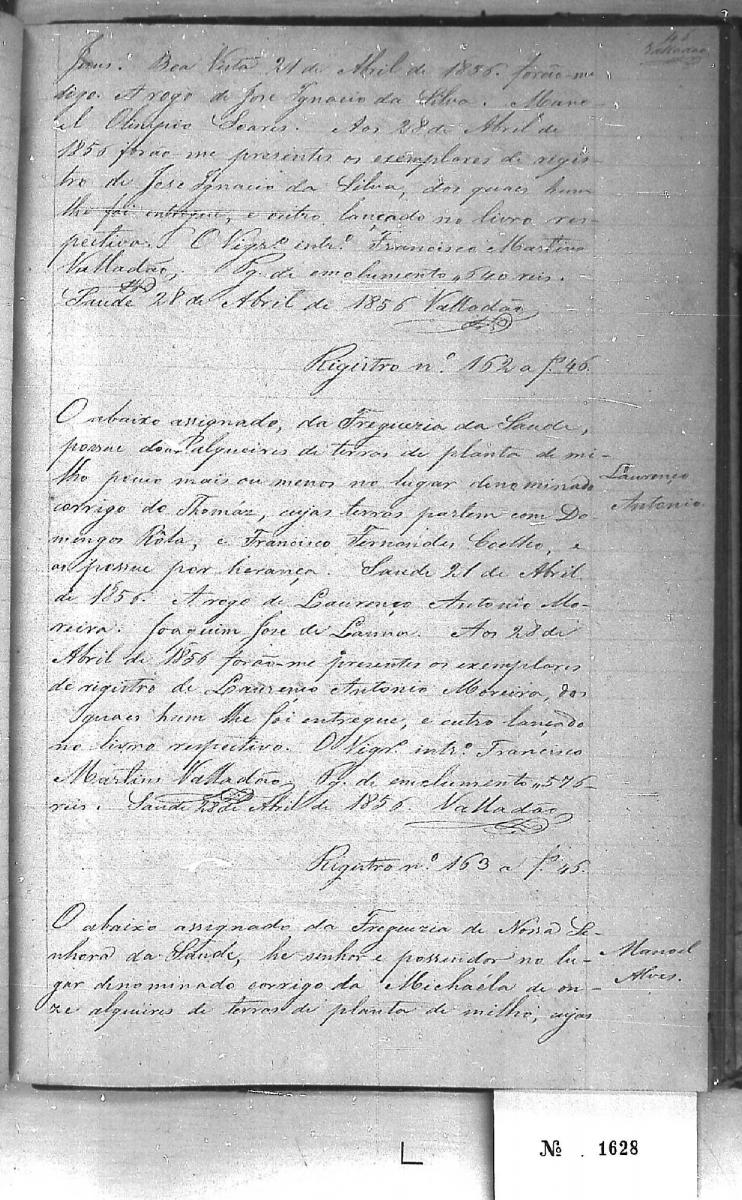 Valladão
Jaus. Boa Vista 21 de Abril de 1856. forão-me
digo. A rogo de Jose Ignacio da Silva. Mano-
el Olimpio Soares. Aos 28 de Abril de
1856 forão-me presentes os exemplares de regis-
tro de Jose Ignacio da Silva, dos quaes hum
lhe foi entregue, e outro lançado no livro res-
pectivo. O Vigrº. intrº. Francisco Martins
Valladão, Pg. de emolumento „640 reis.
Saude 28 de Abril de 1856 Valladão
Registro nº. 162 a f. 46.
O abaixo assignado, da Freguezia da Saude,
possue dous alqueires de terras de planta de mi-
lho pouco mais ou menos no lugar denominado
corrigo do Thomáz, cujas terras partem com Do
mengos Rôla, e Francisco Fernandes Coelho, e
as possue por herança. Saude 21 de Abril
de 1856. A rogo de Laurenço Antonio Mo-
reira. Joaquim Jose de Lanna. Aos 28 de
Abril de 1856 forão-me presentes os exemplares
de registro de Laurenço Antonio Moreira, dos
quaes hum lhe foi entregue, e outro lançado
no livro respectivo. O Vigrº. intrº. Francisco
Martins Valladão, Pg. de emolumento „576-
reis. Saude 28 de Abril de 1856 Valladão
Laurenço
Antonio
Registro nº. 163 a f. 46.
O abaixo assignado da Freguezia de Nossa Se-
nhora da Saude, he senhor e possuidor no lu-
gar denominado corrigo da Michaela de on-
ze alqueires de terras de planta de milho, cujas
Manoel
Alves.
№ 1628